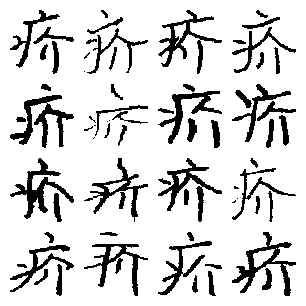 疥疥疥疥
疥疥疥疥
疥疥疥疥
疥疥疥疥